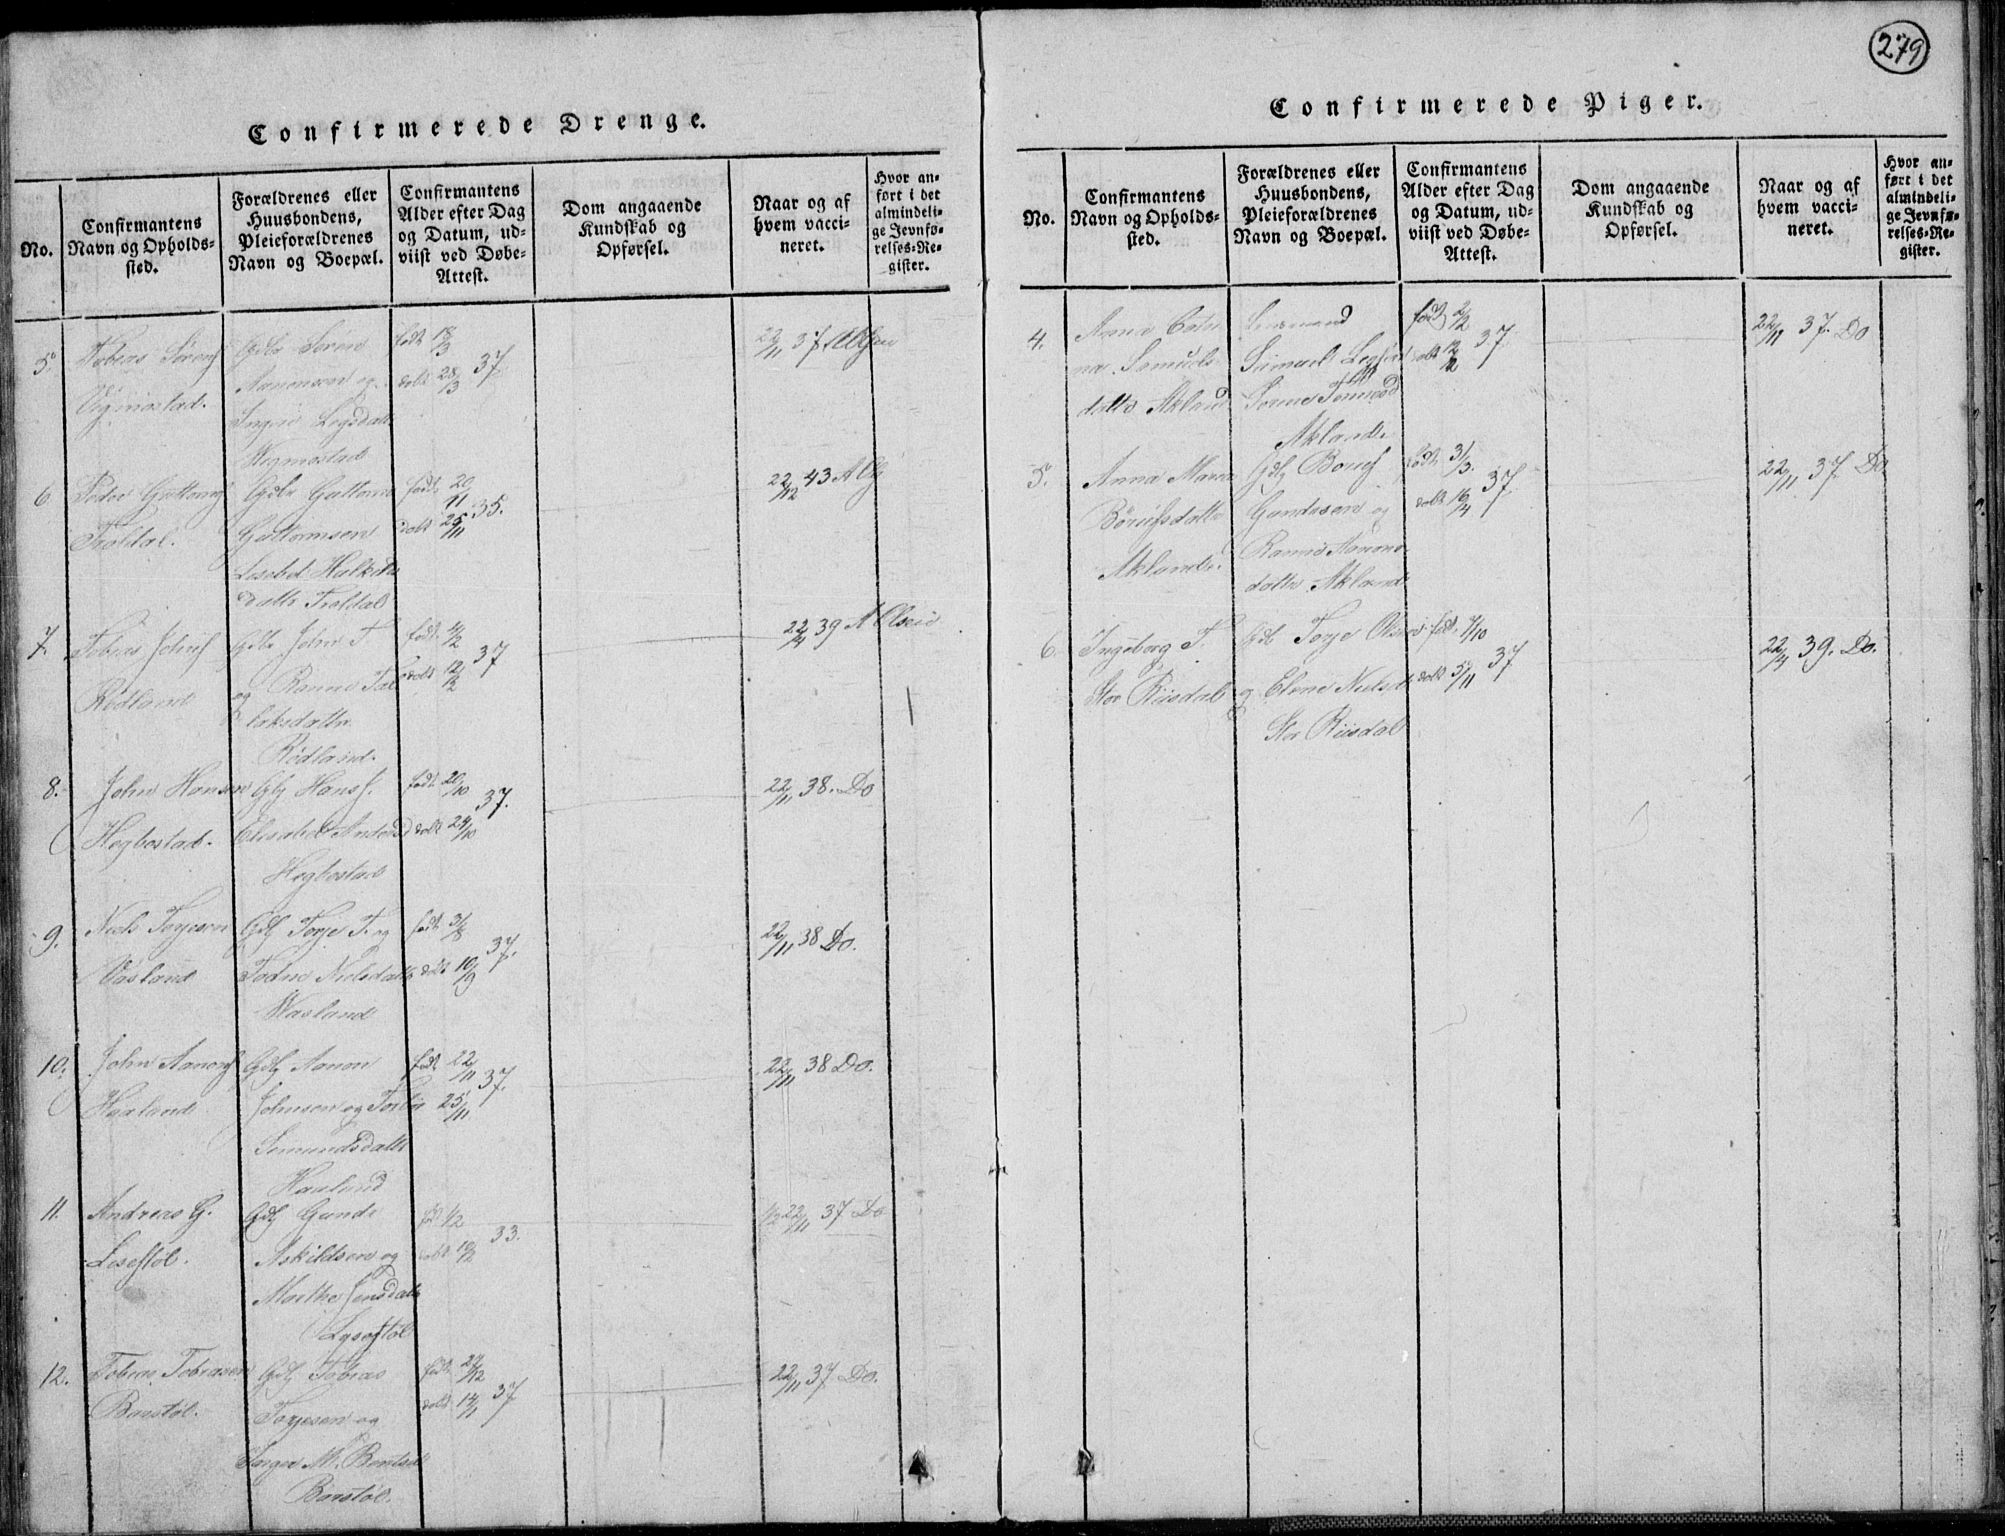 279
Confirmerede Drenge.
No.
Confirmantens
Navn og Opholds-
sted.
Forældrenes eller
Huusbondens,
Pleieforældrenes
Navn og Boepæl.
Confirmantens
Alder efter Dag
og Datum, ud-
viist ved Døbe-
Attest.
Dom angaaende
Kundskab og
Opførsel.
Naar og af
hvem vacci-
neret.
Hvor an-
ført i det
almindeli-
ge Jevnfø-
relses-Re-
gister.
5.
Tobias Sørens
Vigmostad.
Gdbr Søren
Aanensen og
Logsdattr
Wigmostad
født 18/3
døbt 28/3 37
22/11 37
6
Peder Guttorms
Troldal.
Gdbr Guttorm
Guttormsen
Lisebet
dattr Troldal
født 20/11
døbt 25/11 35.
22/12 43
7.
Tobias Johns
Rødland
Gdbr John T
og Ranni Tal
laksdattr
Rødland.
født 4/2
døbt 12/2 37
22/4 39 A Olsen
8.
John Hansen
Hegbostad.
Gbr Hans
Elisabet Anders
Hegbostad
født 20/10
døbt 24/10 37.
22/11 38. Do
9.
Niels Torjesen
Vasland
Gdbr Torje T. og
Todne Nielsdattr
Wasland
født 3/8
døbt 10/9 37.
22/11 38 Do.
10.
John Aanons
Haaland
Gdbr Aanon
Johnsen og Torbor
Semundsdattr
Haaland
født 22/11
25/11 37.
22/11 38 Do.
11.
Andreas G.
Lisestøl.
Gdbr Gunde
Askildsen og
Marthe Jensdattr
Lysestøl
født 1/2
døbt 10/2 33.
22/11 37 Do
12.
Tobias Tobiasen
Barstøl.
Gdbr Tobias
Torjesen og
Inger M. Berntsd
Barstøl.
født 27/12
døbt 14/1 37
22/11 37 Do.
Confirmerede Piger.
No.
Confirmantens
Navn og Opholds-
sted.
Forældrenes eller
Huusbondens,
Pleieforældrenes
Navn og Boepæl.
Confirmantens
Alder efter Dag
og Datum, ud-
viist ved Døbe-
Attest.
Dom angaaende
Kundskab og
Opførsel.
Naar og af
hvem vacci-
neret.
Hvor an-
ført i det
almindeli-
ge Jevnfø-
relses-Re-
gister.
4.
Anna Cathri
na Samuels
dattr Akland
Lensmand
Samuel
Sørine Tønnesd
Aklande
født 2/2
døbt 12/2 37
22/11 37. Do
5.
Anna Maria
Børufsdattr
Aklande.
Gdbr Børuf
Gundesen og
Ranni Aanons
dattr Akland
født 31/3.
døbt 16/4 37
22/11 37. Do
6.
Ingeborg T.
Stor Riisdal
Gdb Torje Olsen
og Elene Nielsdt
Stor Riisdal
født 7/10
døbt 5/11 37
22/4 39. Do.